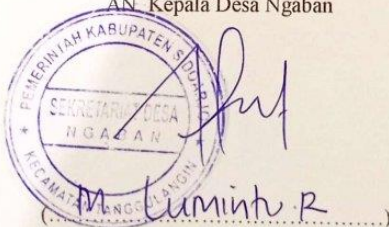 AN Kepala Desa Ngaban
PEMERINTAH KABUPATEN SIDOARJO
SEKRETARIAT DESA
NGABAN
KECAMATAN TANGGULANGIN
(M. Lumintu.R)